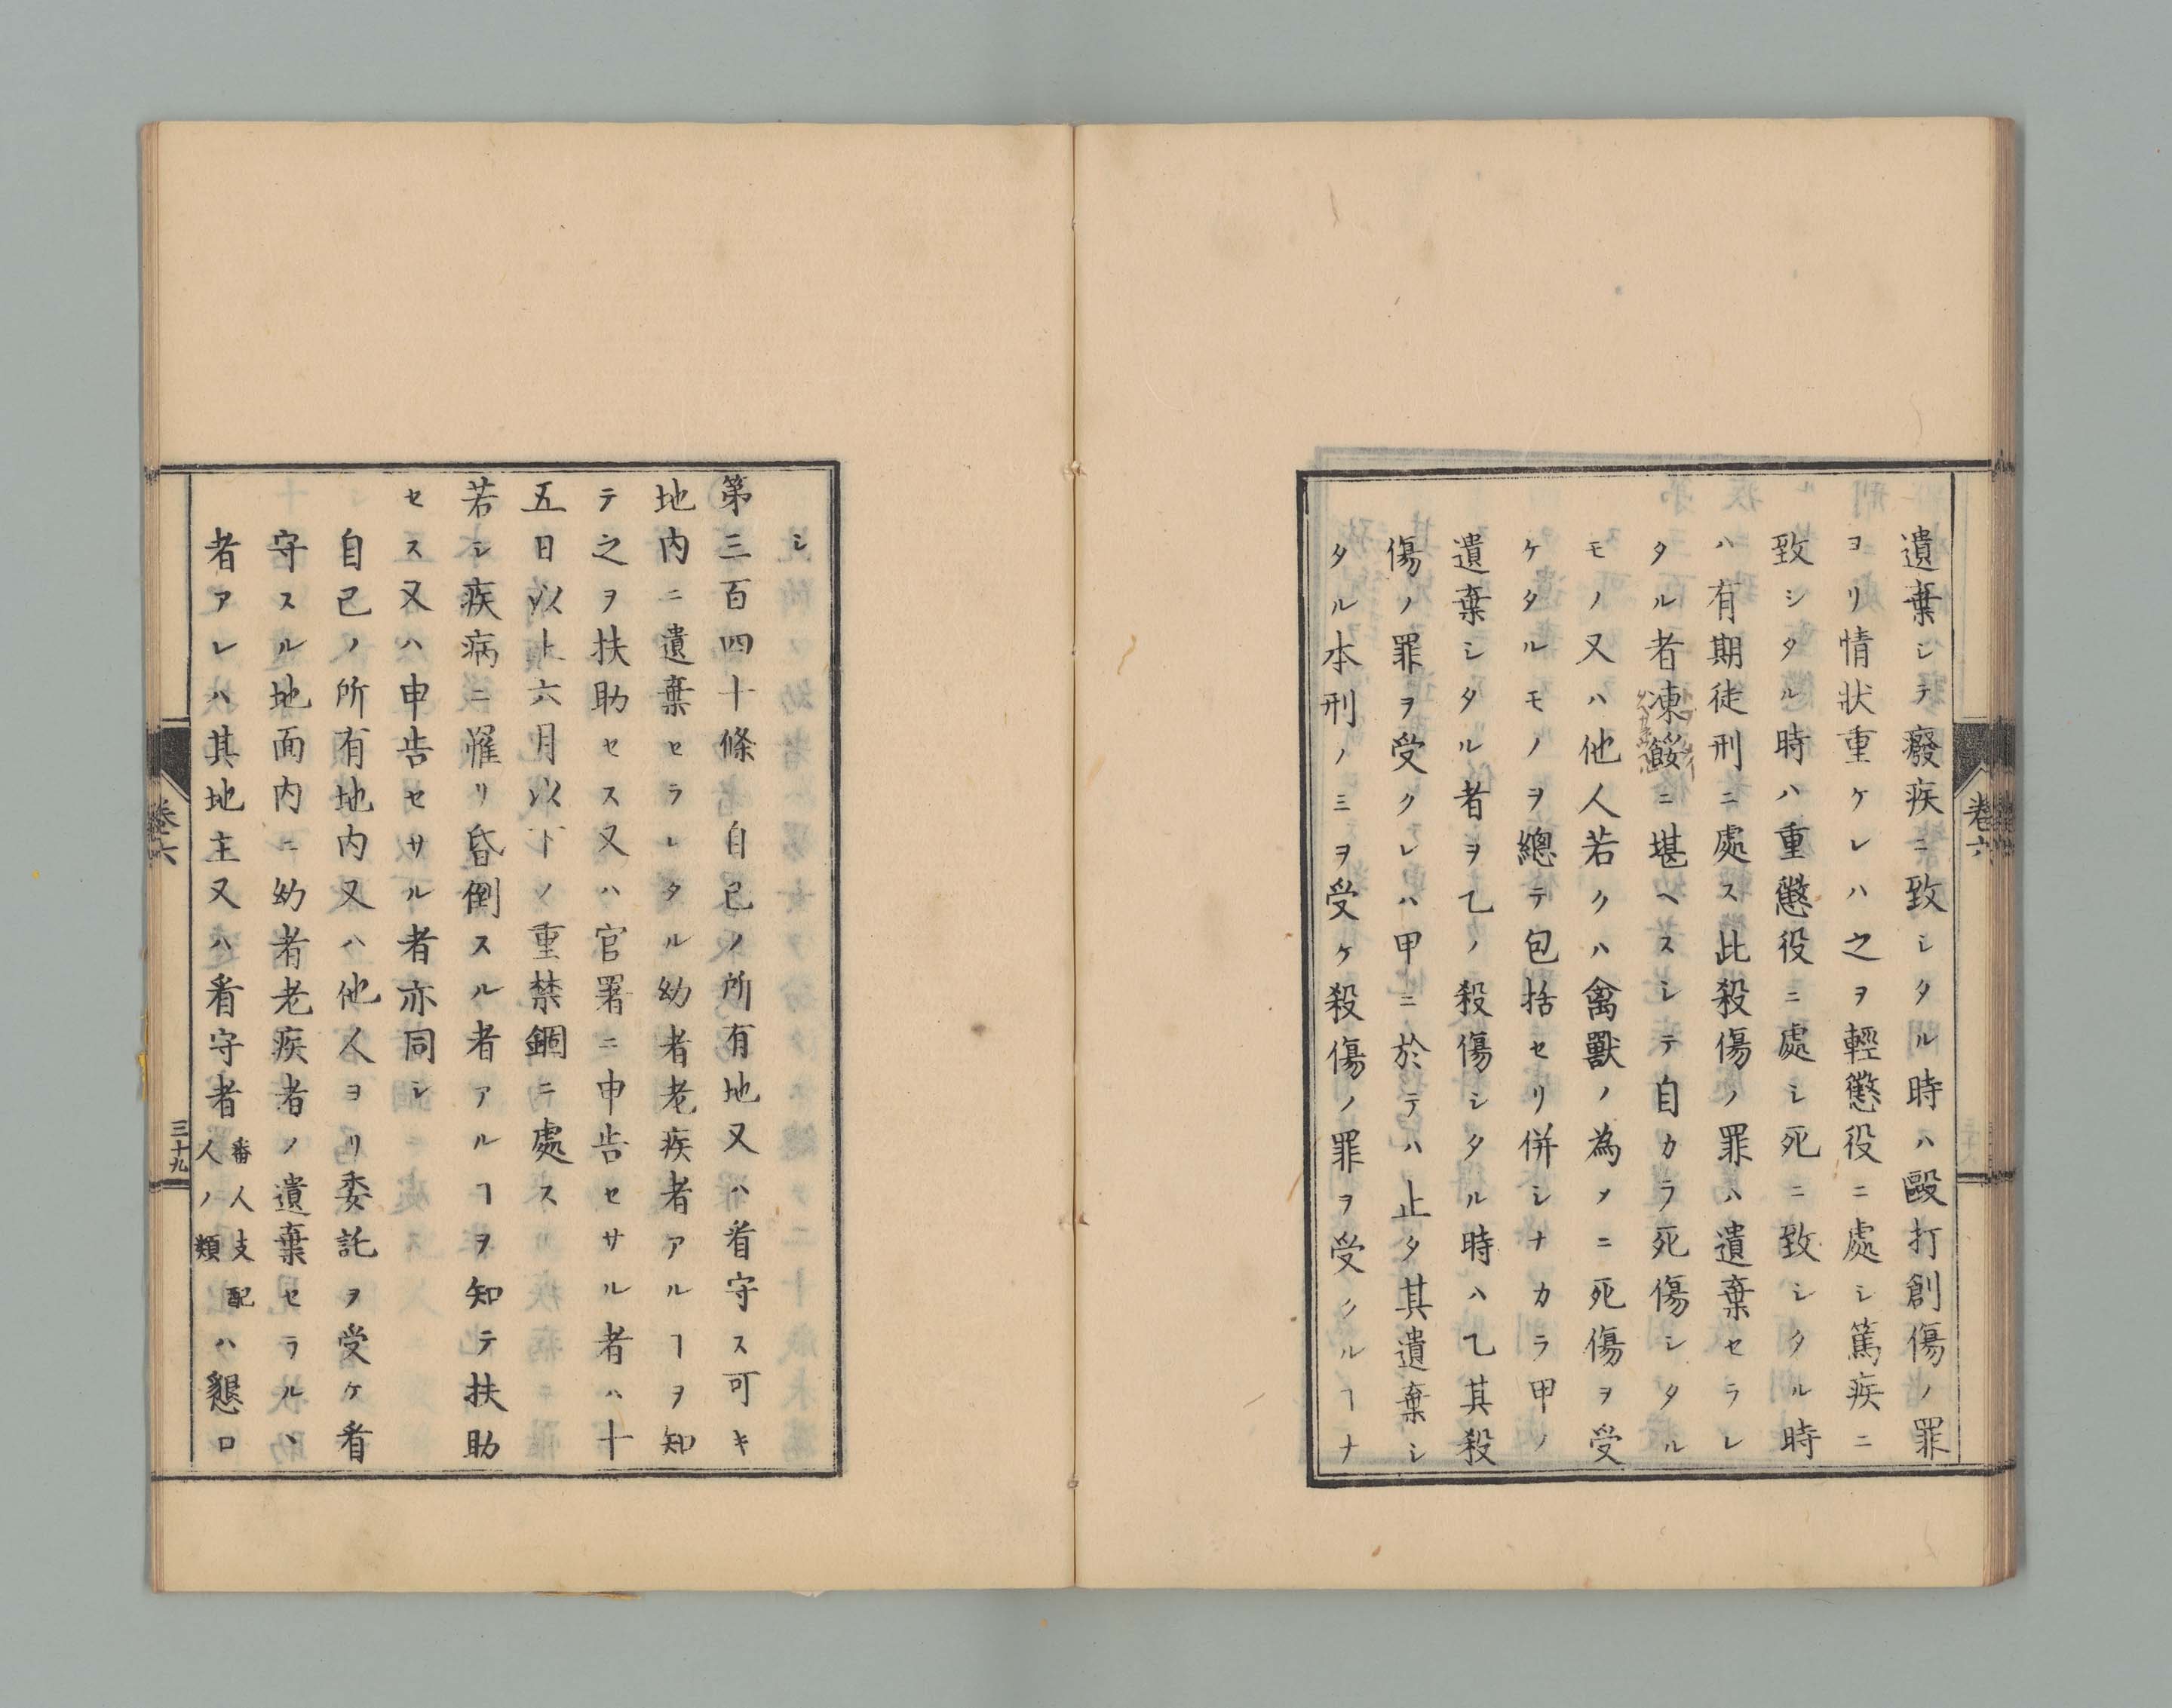 遺棄シテ癈疾ニ致シタル時ハ毆打創傷ノ罪
ヨリ情狀重ケレハ之ヲ輕懲役ニ處シ篤疾ニ
致シタル時ハ重懲役ニ處シ死ニ致シタル時
ハ有期徒刑ニ處ス此殺傷ノ罪ハ遺棄セラレ
タル者凍餒ニ堪ヘスシテ自カラ死傷シタル
モノ又ハ他人若クハ禽獸ノ為メニ死傷ヲ受
ケタルモノヲ總テ包括セリ併シナカラ甲ノ
遺棄シタル者ヲ乙ノ殺傷シタル時ハ乙其殺
傷ノ罪ヲ受クレハ甲ニ於テハ止タ其遺棄シ
タル本刑ノミヲ受ケ殺傷ノ罪ヲ受クルヿナ
卷六
シ
第三百四十條 自己ノ所有地又ハ看守ス可キ
地内ニ遺棄セラレタル幼者老疾者アルヿヲ知
テ之ヲ扶助セス又ハ官署ニ申告セサル者ハ十
五日以上六月以下ノ重禁錮ニ處ス
若シ疾病ニ罹リ昏倒スル者アルヿヲ知テ扶助
セス又ハ申告セサル者亦同シ
自己ノ所有地内又ハ他人ヨリ委託ヲ受ケ看
守スル地面内ニ幼者老疾者ノ遺棄セラルヽ
者アレハ其地主又ハ看守者番人支配人ノ類ハ懇ロ
卷六
三十九